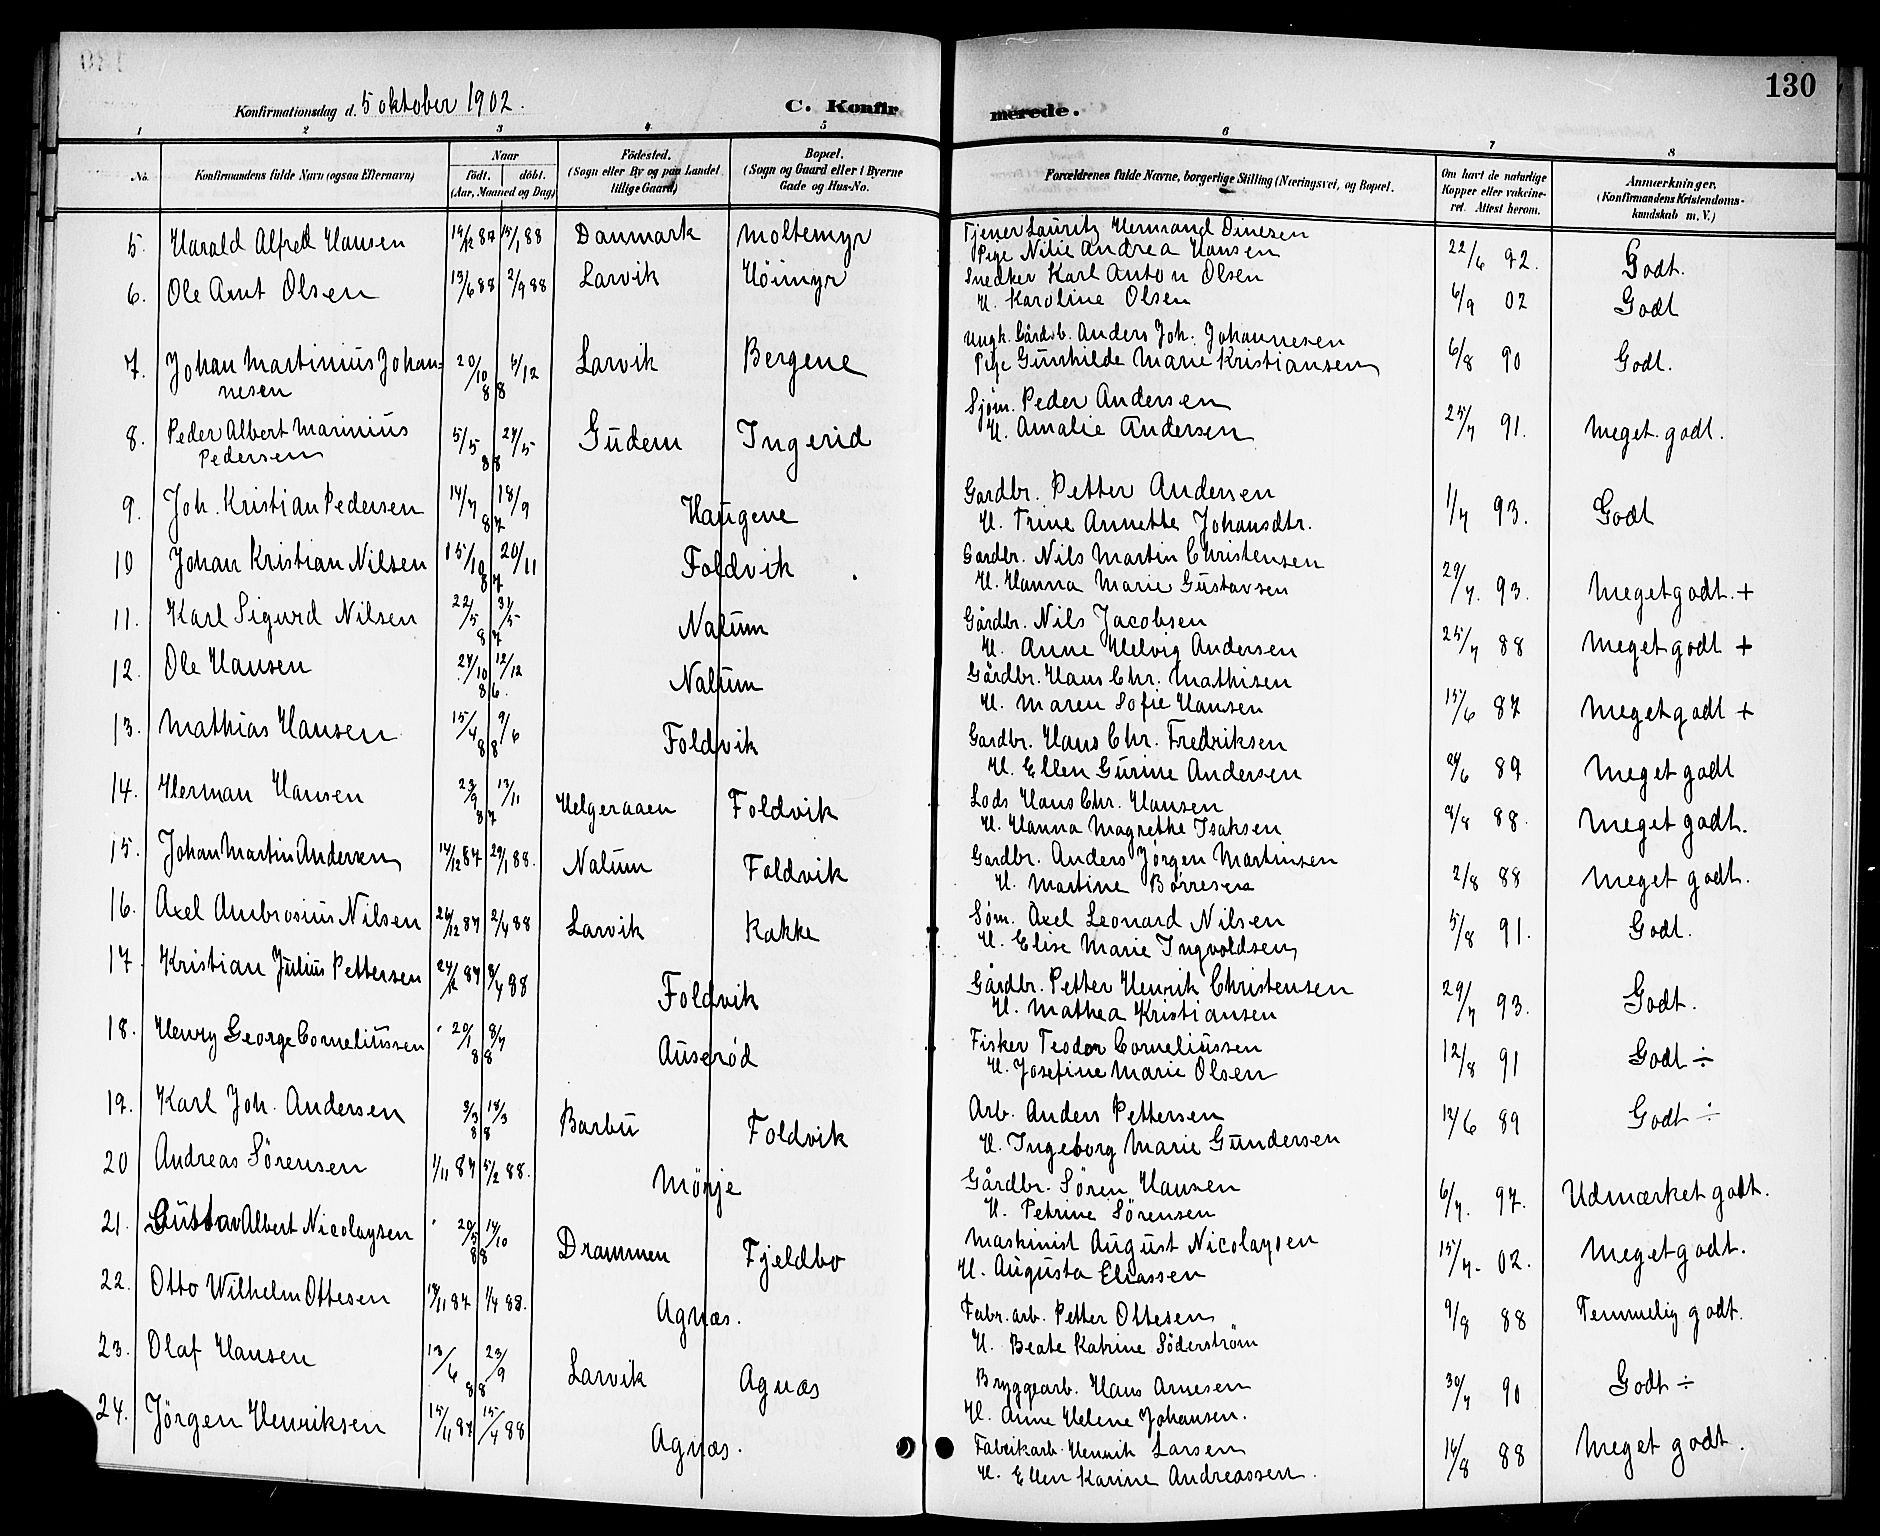 130
Konfirmationsdag d. 5 oktober 1902. C. Konfirmerede.
1 2 3 4 5 6 7 8
No. Konfirmandens fulde Navn (ogsaa Efternavn) Naar födt. döbt. (Aar, Maaned og Dag) Födested. (Sogn eller By og paa Landet tillige Gaard) Bopæl. (Sogn og Gaard eller i Byerne Gade og Hus-No. Forældrenes fulde Navne, borgerlige Stilling (Næringsvei, og Bopæl. Om havt de naturlige Kopper eller vakcineret. Attest herom. Anmærkninger. (Konfirmandens Kristendomskundskab m. V.)
5. Harald Alfred Hansen 87 88 Danmark Moltemyr Tjener Lauritz Hermand Dinesen 22/6 92. Godt.
Pige Nilie Andrea Hansen
6. Ole Amt Olsen 13/6 88 2/9 88 Larvik Höimyr Snedker Karl Anton Olsen 6/9 02 Godt
H. Karoline Olsen
7. Johan Martinius Johannesen 20/10 4/12 88 Larvik Bergene Ungk. Gårdsb. Anders Joh. Johannesen 6/8 90 Godt.
Pige Gunhilde Marie Kristiansen
8. Peder Albert Marinius Pedersen 5/5 27/5 88 Gudem Ingerid Sjøm. Peder Andersen 25/7 91. Meget godt.
H. Amalie Andersen
9. Joh. Kristian Pedersen 14/7 18/9 87 Haugene Gardbr. Petter Andersen 1/7 93. Godt
H. Trine Annette Johansdtr.
10 Johan Kristian Nilsen 15/10 20/11 87 Foldvik Gardbr. Nils Martin Christensen 29/7. 93. Meget godt. +
H. Hanna Marie Gustavsen
11. Karl Sigurd Nilsen 22/5 31/5 87 Nalum Gårdbr. Nils Jacobsen 25/7 88 Meget godt +
H. Anne Helvig Andersen
12. Ole Hansen 27/10 12/12 86. Nalum Gårdbr. Hans Chr. Mathisen 15/6 87 Meget godt +
H. Maren Sofie Hansen
13. Mathias Hansen 15/4 9/6 88 Foldvik Gardbr. Hans Chr. Fredriksen 89 Meget godt
H. Ellen Gurine Andersen
14. Herman Hansen 23/9 13/11 87 Helgeraaen Foldvik Lods Hans Chr. Hansen 88. Meget godt.
H. Hanna Magrethe Isaksen
15. Johan Martin Andersen 14/12 87 29/1 88. Nalum Foldvik Gardbr. Anders Jørgen Martinsen 2/8 88 Meget godt.
H. Martine Børresen
16. Axel Ambrosius Nilsen 26/12 87 2/4 88 Larvik Kakke Søm. Axel Leonard Nilsen 5/8 91. Godt.
H. Elise Marie Ingvoldsen
17. Kristian Julius Pettersen 87 88 Foldvik Gårdbr. Petter Henrik Christensen 29/7 93. Godt.
H. Mathea Kristiansen
18. Henry George Corneliussen 20/1 8/7 88 Auserød Fisker Teodor Corneliussen 12/8 91 Godt ÷
H. Josefine Marie Olsen
19. Karl Joh. Andersen 3/3 18/3 88 Barbu Foldvik Arb. Anders Pettersen 12/6 89 Godt ÷
H. Ingeborg Marie Gundersen
20 Andreas Sörensen 1/11 87 5/2 88. Mönje Gårdbr. Sören Hansen 6/7. 97. Udmærket godt.
H. Petrine Sörensen
21. Gustav Albert Nicolaysen 20/5 14/10 88 Drammen Fjeldbo Maskinist August Nicolaysen 15/7- 02. Meget godt.
H. Augusta Eliassen
22. Otto Wilhelm Ottesen 87 1/4 88. Agnæs. Fabr. arb. Petter Ottesen 9/8 88 Temmelig godt.
H. Beate Katrine Söderström
23. Olaf Hansen 13/6 23/9 88 Larvik Agnæs Bryggearb. Hans Arnesen 30/7 90 Godt ÷
H. Anne Helene Johansen.
24. Jörgen Henriksen 15/11 87 15/4 88 Agnæs. Fabrikarb. Henrik Larsen 14/8 88 Meget godt.
H. Ellen Karine Andreassen.